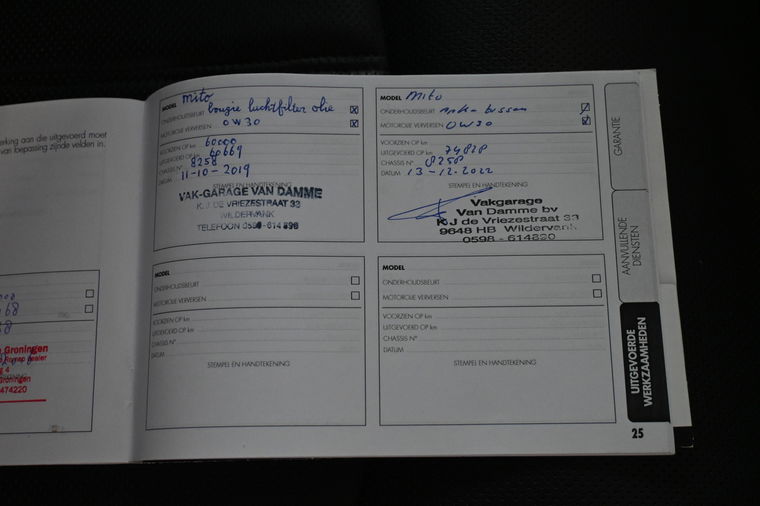 erking aan die uitgevoerd moet
van toepassing zijnde velden in.
Groningen
dealer
g 4
Groningen
474220
MODEL mito
ONDERHOUDSBEURT bougie luchtfilter olie
MOTOROLIE VERVERSEN 0W30
VOORZIEN OP km 60000
UITGEVOERD OP km 60669
CHASSIS N° 8258
DATUM 11-10-2019
STEMPEL EN HANDTEKENING
VAK-GARAGE VAN DAMME
K.J DE VRIEZESTRAAT 33
WILDERVANK
TELEFOON 0598-614890
MODEL Mito
ONDERHOUDSBEURT
MOTOROLIE VERVERSEN 0W30
VOORZIEN OP km
UITGEVOERD OP km 74828
CHASSIS N° 8258
DATUM 13-12-2022
STEMPEL EN HANDTEKENING
Vakgarage
Van Damme bv
K.J de Vriezestraat 33
9648 HB Wildervank
0598 - 614890
MODEL
ONDERHOUDSBEURT
MOTOROLIE VERVERSEN
VOORZIEN OP km
UITGEVOERD OP km
CHASSIS N°
DATUM
STEMPEL EN HANDTEKENING
MODEL
ONDERHOUDSBEURT
MOTOROLIE VERVERSEN
VOORZIEN OP km
UITGEVOERD OP km
CHASSIS N°
DATUM
STEMPEL EN HANDTEKENING
GARANTIE
AANVULLENDE
DIENSTEN
UITGEVOERDE
WERKZAAMHEDEN
25